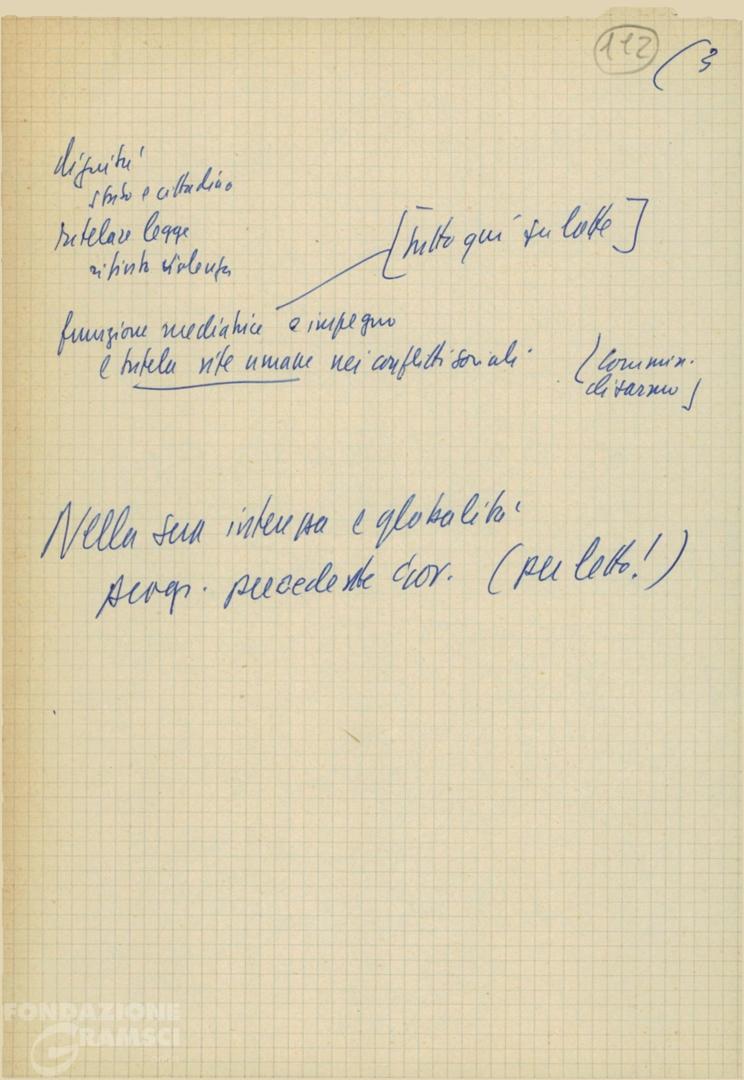 112
(3
dignità
stato e cittadino
tutelare legge
rifiuto violenza
[Tutto qui su lotte]
funzione mediatrice e impegno
e tutela vite umane nei conflitti sociali.
(commin.
disarmo)
Nella sua interezza e globalità
precedente (per letto!)
FONDAZIONE
GRAMSCI